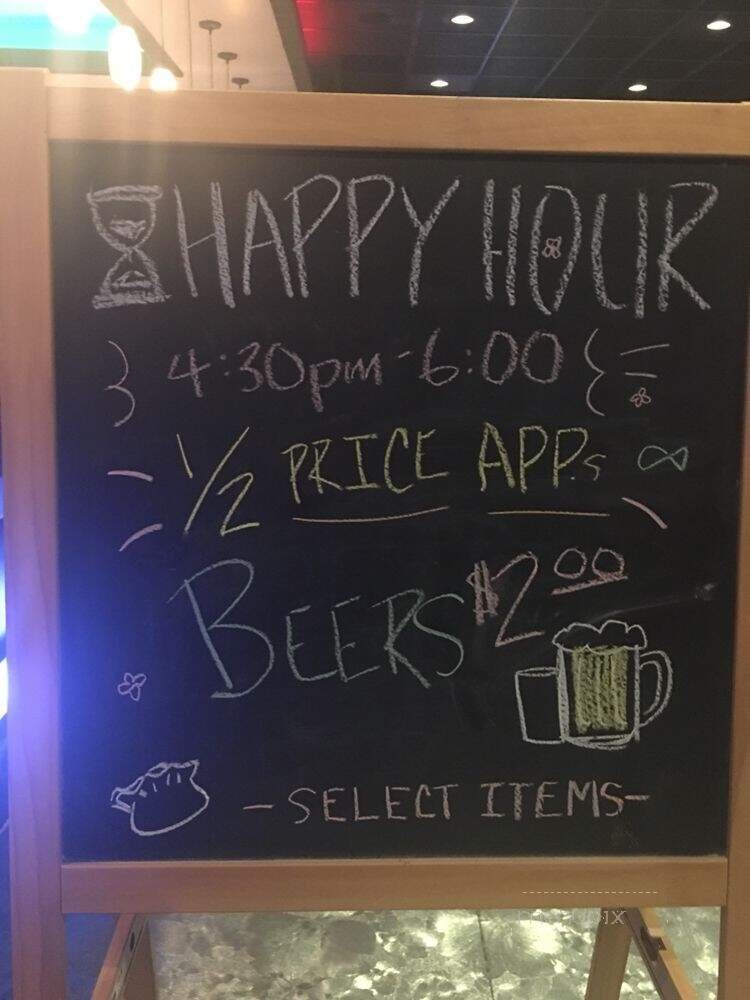 HAPPY HOUR
4:30pm-6:00
1/2 PRICE APPs
BEERS $2.00
-SELECT ITEMS-